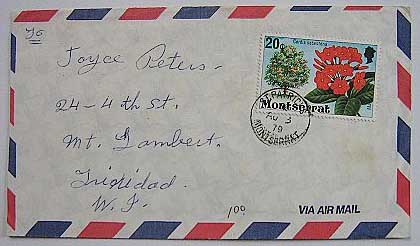 To
Joyce Peters.
24-4th St.
Mt. Lambert.
Trinidad.
W.I.
20c
Cordia sebestena
Montserrat
AU 3
79
MONTSERRAT
100
VIA AIR MAIL